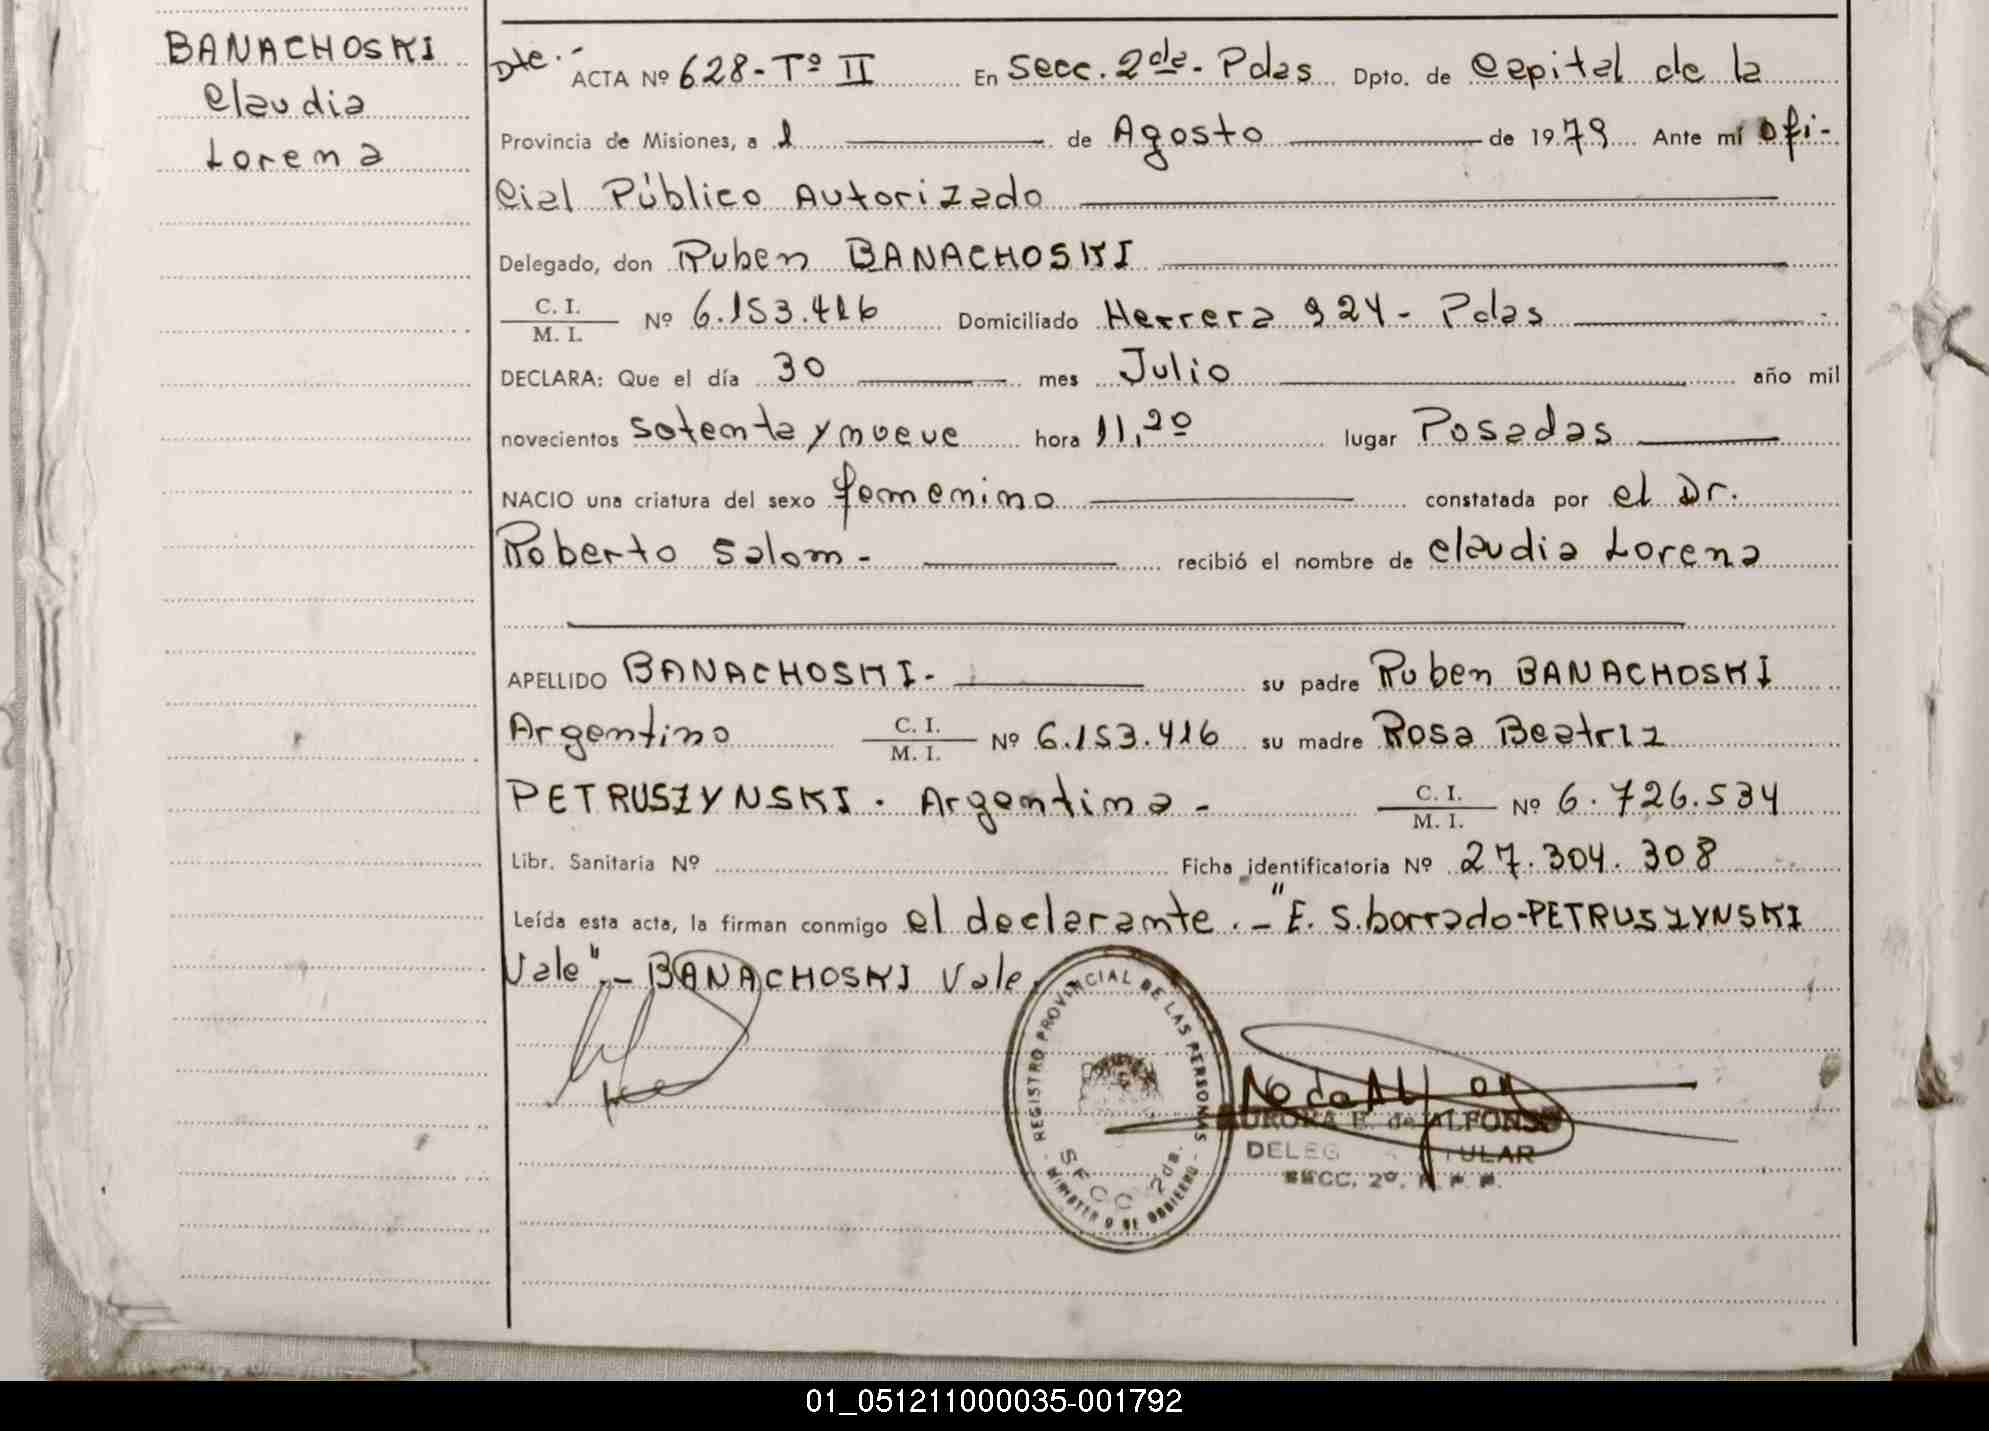 BANACHOSKI
Claudia
Lorena
Dte.-
ACTA Nº 628-Tº II En Secc. 2da- Pdas Dpto. de Capital de la
Provincia de Misiones, a 1 de Agosto de 1979 Ante mí Ofi-
cial Público Autorizado
Delegado, don Ruben BANACHOSKI
C. I.
M. I. Nº 6.153.416 Domiciliado Herrera 924- Pdas
DECLARA: Que el día 30 mes Julio año mil
novecientos setenta y nueve hora 11,20 lugar Posadas
NACIO una criatura del sexo femenino constatada por el Dr.
Roberto Salom- recibió el nombre de Claudia Lorena
APELLIDO BANACHOSKI- su padre Ruben BANACHOSKI
Argentino C. I.
M. I. Nº 6.153.416 su madre Rosa Beatriz
PETRUSZYNSKI. Argentina- C. I.
M. I. Nº 6.726.534
Libr. Sanitaria Nº Ficha identificatoria Nº 27.304.308
Leída esta acta, la firman conmigo el declarante.-"E. S.borrado-PETRUSZYNSKI
Vale".- BANACHOSKI Vale
REGISTRO PROVINCIAL DE LAS PERSONAS
SECC 2da.
MINISTERIO DE GOBIERNO
AURORA E. de ALFONSO
TITULAR
SECC. 2º. R. P. P.
01_051211000035-001792